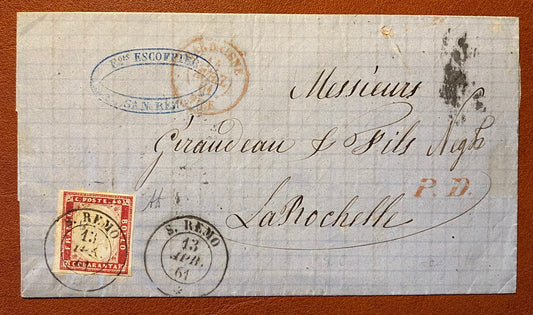 Fois ESCOFFIER
SAN REMO
Messieurs
Giraudeau & Fils Negts
P. D.
La Rochelle
C. POSTE 40
FRANCO
BOLLO
C. QUARANTA
S. REMO
13
APR.
61
S. REMO
13
APR.
61